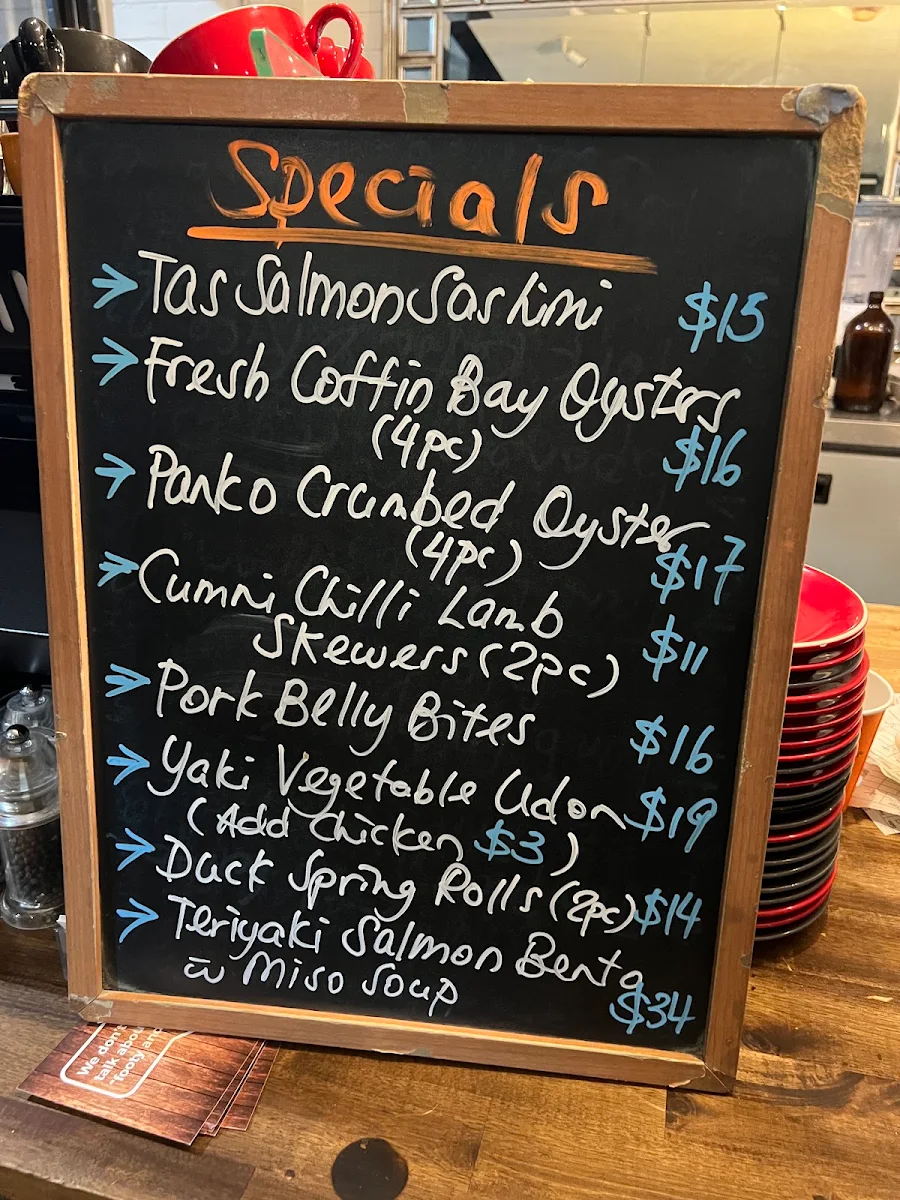 Specials
→ Tas Salmon Sashimi $15
→ Fresh Coffin Bay Oysters
(4pc) $16
→ Panko Crumbed Oyster
(4pc) $17
→ Cumni Chilli Lamb
Skewers (2pc) $11
→ Pork Belly Bites $16
→ Yaki Vegetable Udon $19
(Add Chicken $3)
→ Duck Spring Rolls (2pc) $14
→ Teriyaki Salmon Bento
w̄ Miso Soup $34
We don't
talk about
"footy and